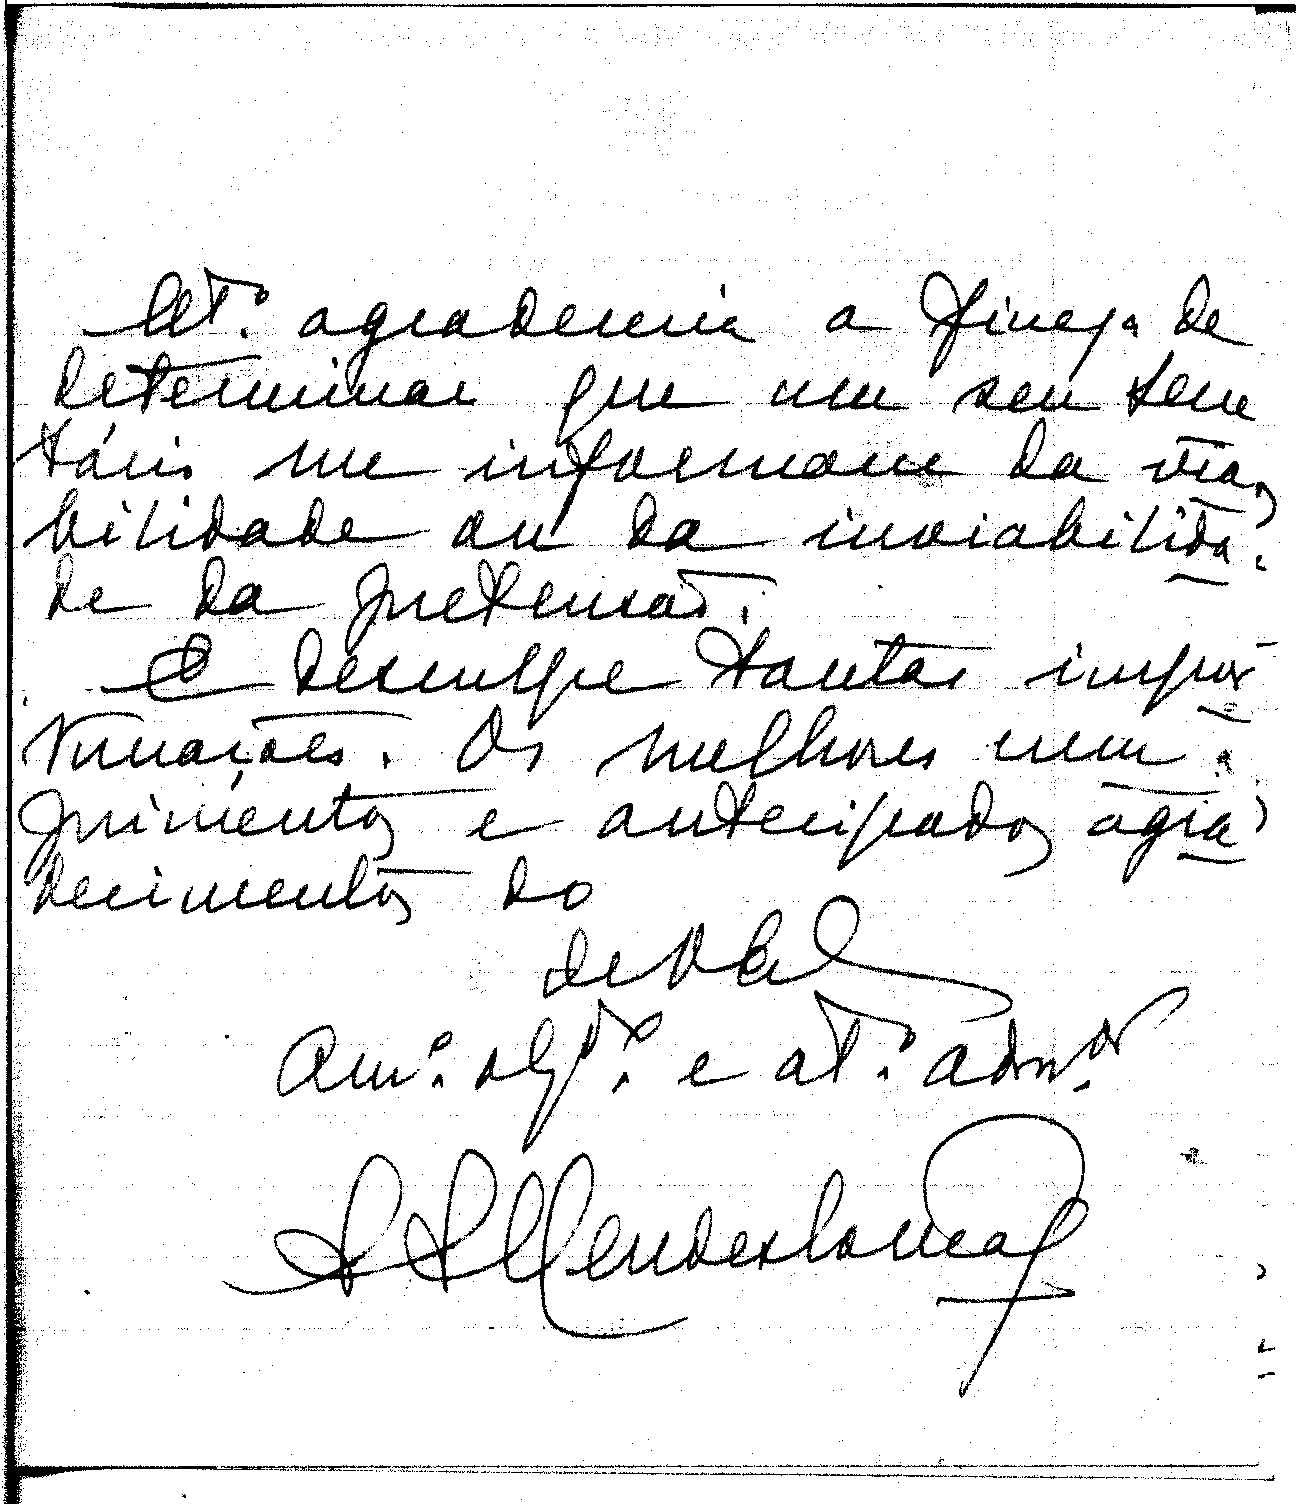 Mt.º agradeceria a fineza de
determinar que um seu secre
tário me informasse da via
bilidade ou da inviabilida
de da pretensão.
E desculpe tantas impor
tunações. Os melhores cum
primentos e antecipados agra
decimentos do
de V. Ex.
Am.º obg.do e at.º adm.or